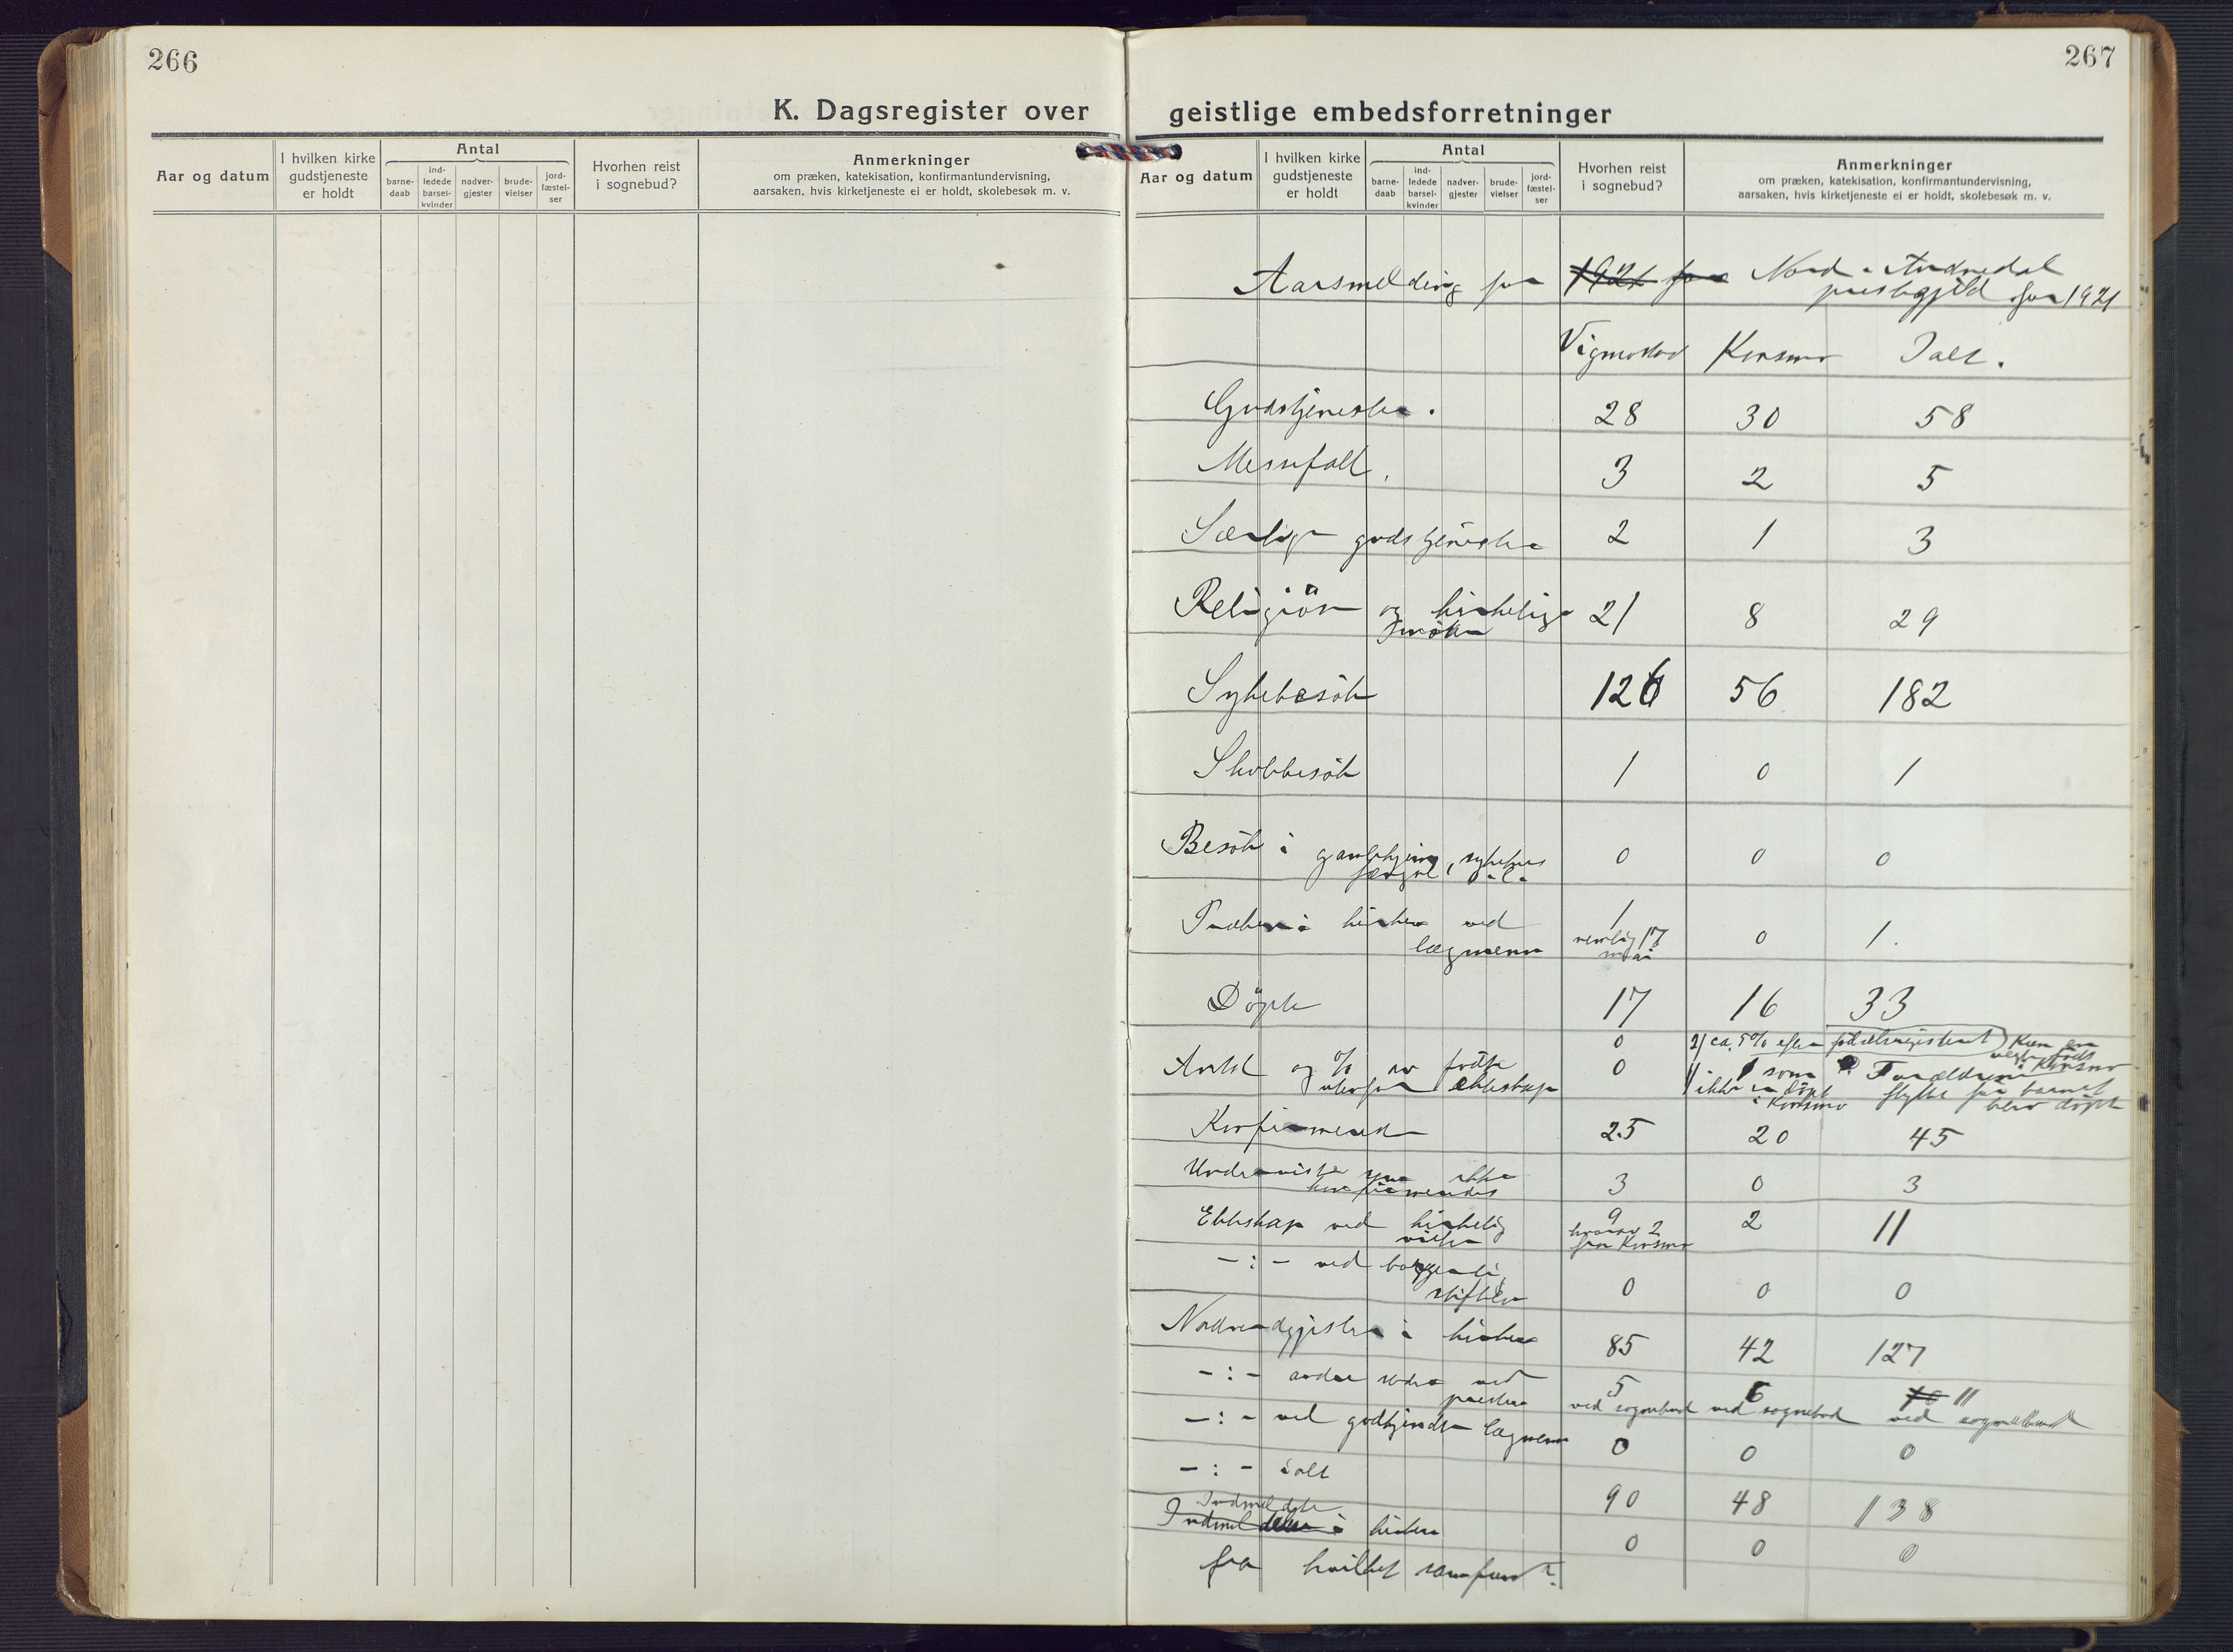 266
K. Dagsregister over
Aar og datum
I hvilken kirke
gudstjeneste
er holdt
Antal
barne-
daab
ind-
ledede
barsel-
kvinder
nadver-
gjester
brude-
vielser
jord-
fæstel-
ser
Hvorhen reist
i sognebud?
Anmerkninger
om præken, katekisation, konfirmantundervisning,
aarsaken, hvis kirketjeneste ei er holdt, skolebesøk m. v.
267
geistlige embedsforretninger
Aar og datum
I hvilken kirke
gudstjeneste
er holdt
Antal
barne-
daab
ind-
ledede
barsel-
kvinder
nadver-
gjester
brude-
vielser
jord-
fæstel-
ser
Hvorhen reist
i sognebud?
Anmerkninger
om præken, katekisation, konfirmantundervisning,
aarsaken, hvis kirketjeneste ei er holdt, skolebesøk m. v.
Aarsmelding for 1921 for Nord-Audnedal
prestegjeld for 1921
Vigmostad Konsmo Ialt.
Gudstjenester. 28 30 58
Messefall 3 2 5
Særlige gudstjenester 2 1 3
Religiöse og kirkelige 21 8 29
möter
Sykebesök 126 56 182
Skolebesök 1 0 1
Besök i gamlehjem, sykehus 0 0 0
fængsel o.l.
Præken i kirken ved 1 0 1.
lægmenn nemlig 17
mai
Döpte 17 16 33
Antal og % av födte 0 2) ca. 5% efter födselsregisteret) Kun en
utenfor ekteskap 0 1) 1 som Forældrene Konsmo
ikke er döpt flyttet før barnet
i Konsmo blev döpt
Konfirmerte 25 20 45
Underviste som ikke 3 0 3
konfirmerdes
Ekteskap ved kirkelig 9 2 11
vielse hvorav 2
fra Konsmo
-:- ved borgerlig
stiftelse 0 0 0
Nadverdgjester i kirken 85 42 127
-:- andre steder ved 5 6 10 11
presten ved sognebud ved sognebud ved sognebud
-:- ved godkjendte lægmenn 0 0 0
-:- ialt 90 48 138
Indmeldte
Indmeldelse i kirken 0 0 0
fra hvilket samfund?